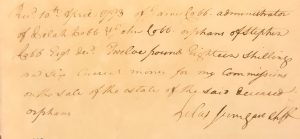 Recd 10th April 1793 of Cobb administrator
of Cobb & John Cobb orphans of Stephen
Cobb Esqr decd Twelve pound Eighteen Shillings
and Six Current money for my Commissions
on the sale of the estate of the said deceased
orphans